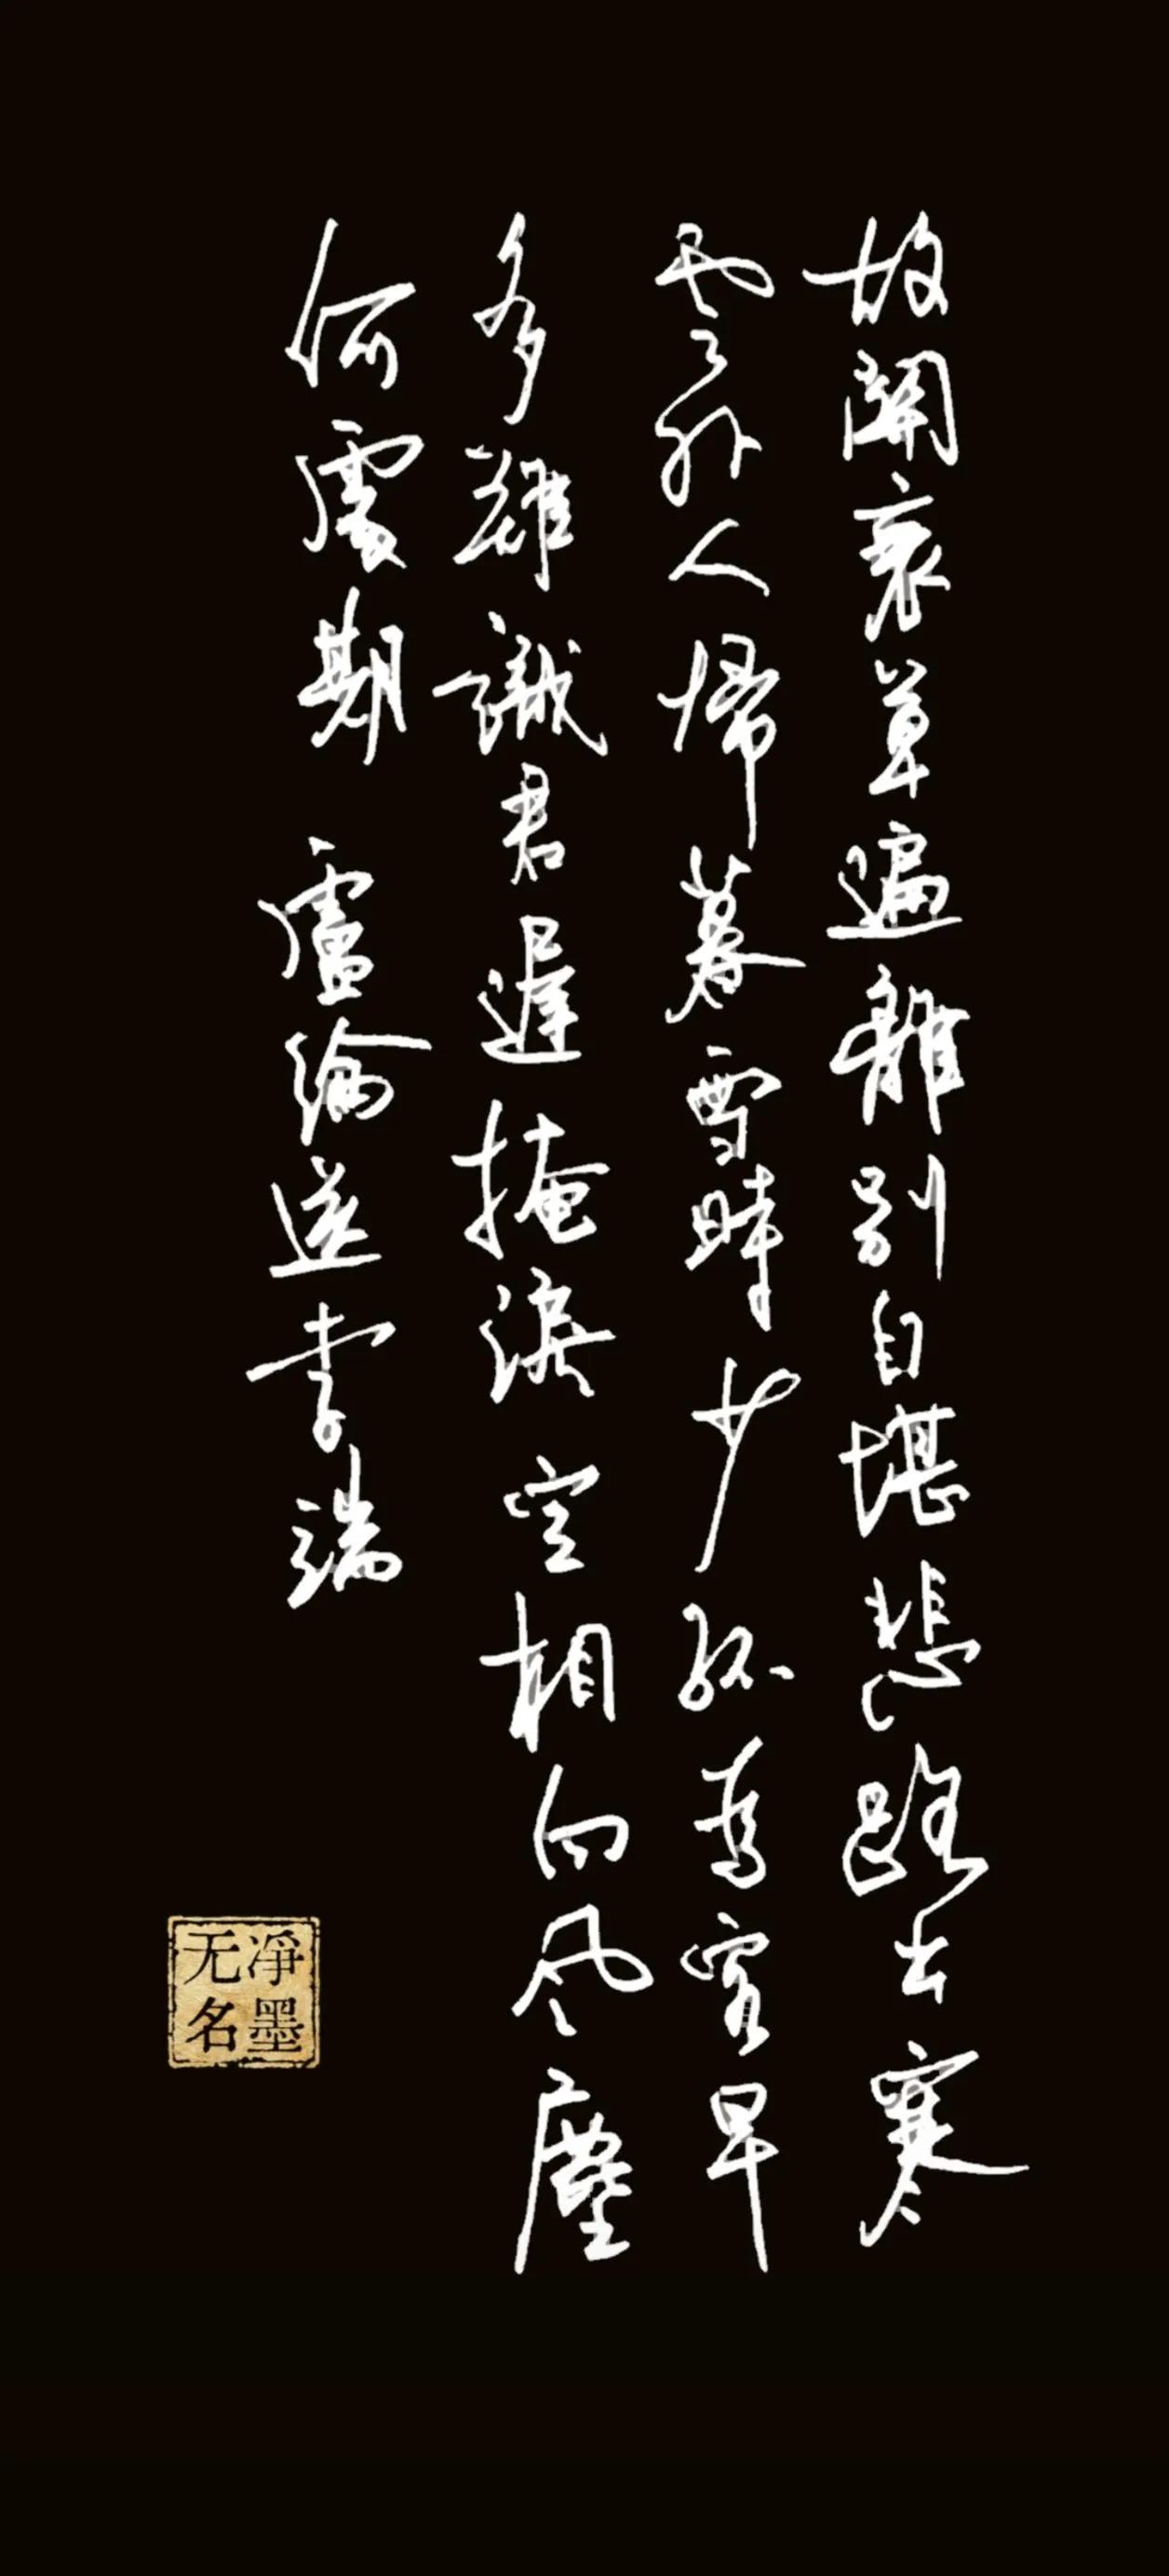 故關衰草遍離別自堪悲路出寒
雲外人歸暮雪時少孤為客早
多難識君遲掩淚空相向風塵
何處期 盧綸送李端
凈墨
无名